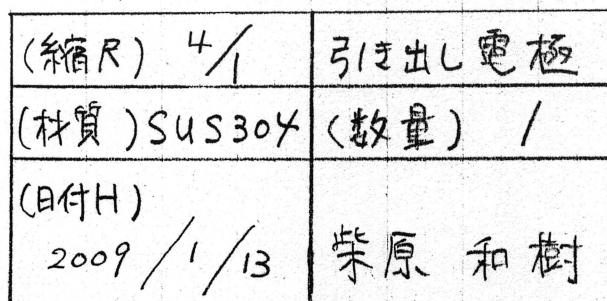 (縮尺) 4/1 引き出し電極
(材質)SUS304 (数量) 1
(日付H)
2009/1/13 柴原 和樹